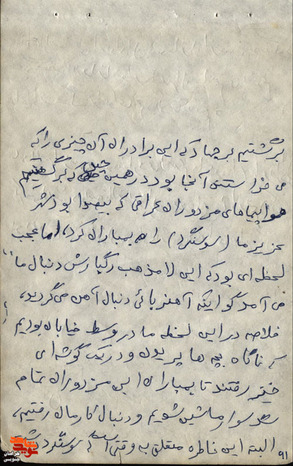 برگشتیم هر جا که این برادران آن چیزی را که
می خواستند آنجا بود در همین حین که برگشتیم
هواپیماهای مزدوران عراقی که شهر
عزیز ما (سوسنگرد) را بمباران کرد، اما عجب
لحظه ای بود که این لامذهب رگبارش دنبال ما
می آمد گو اینکه آهنربائی دنبال آهن می گردید،
خلاصه در این لحظه ما در وسط خیابان بودیم
که ناگاه بچه ها پریدن و در یک گوشه ای
رفتند تا بمباران این مزدوران تمام
سوار ماشین شویم و دنبال کارمان رفتیم،
البته این خاطره متعلق به وقتی سوسنگرد
۹۱